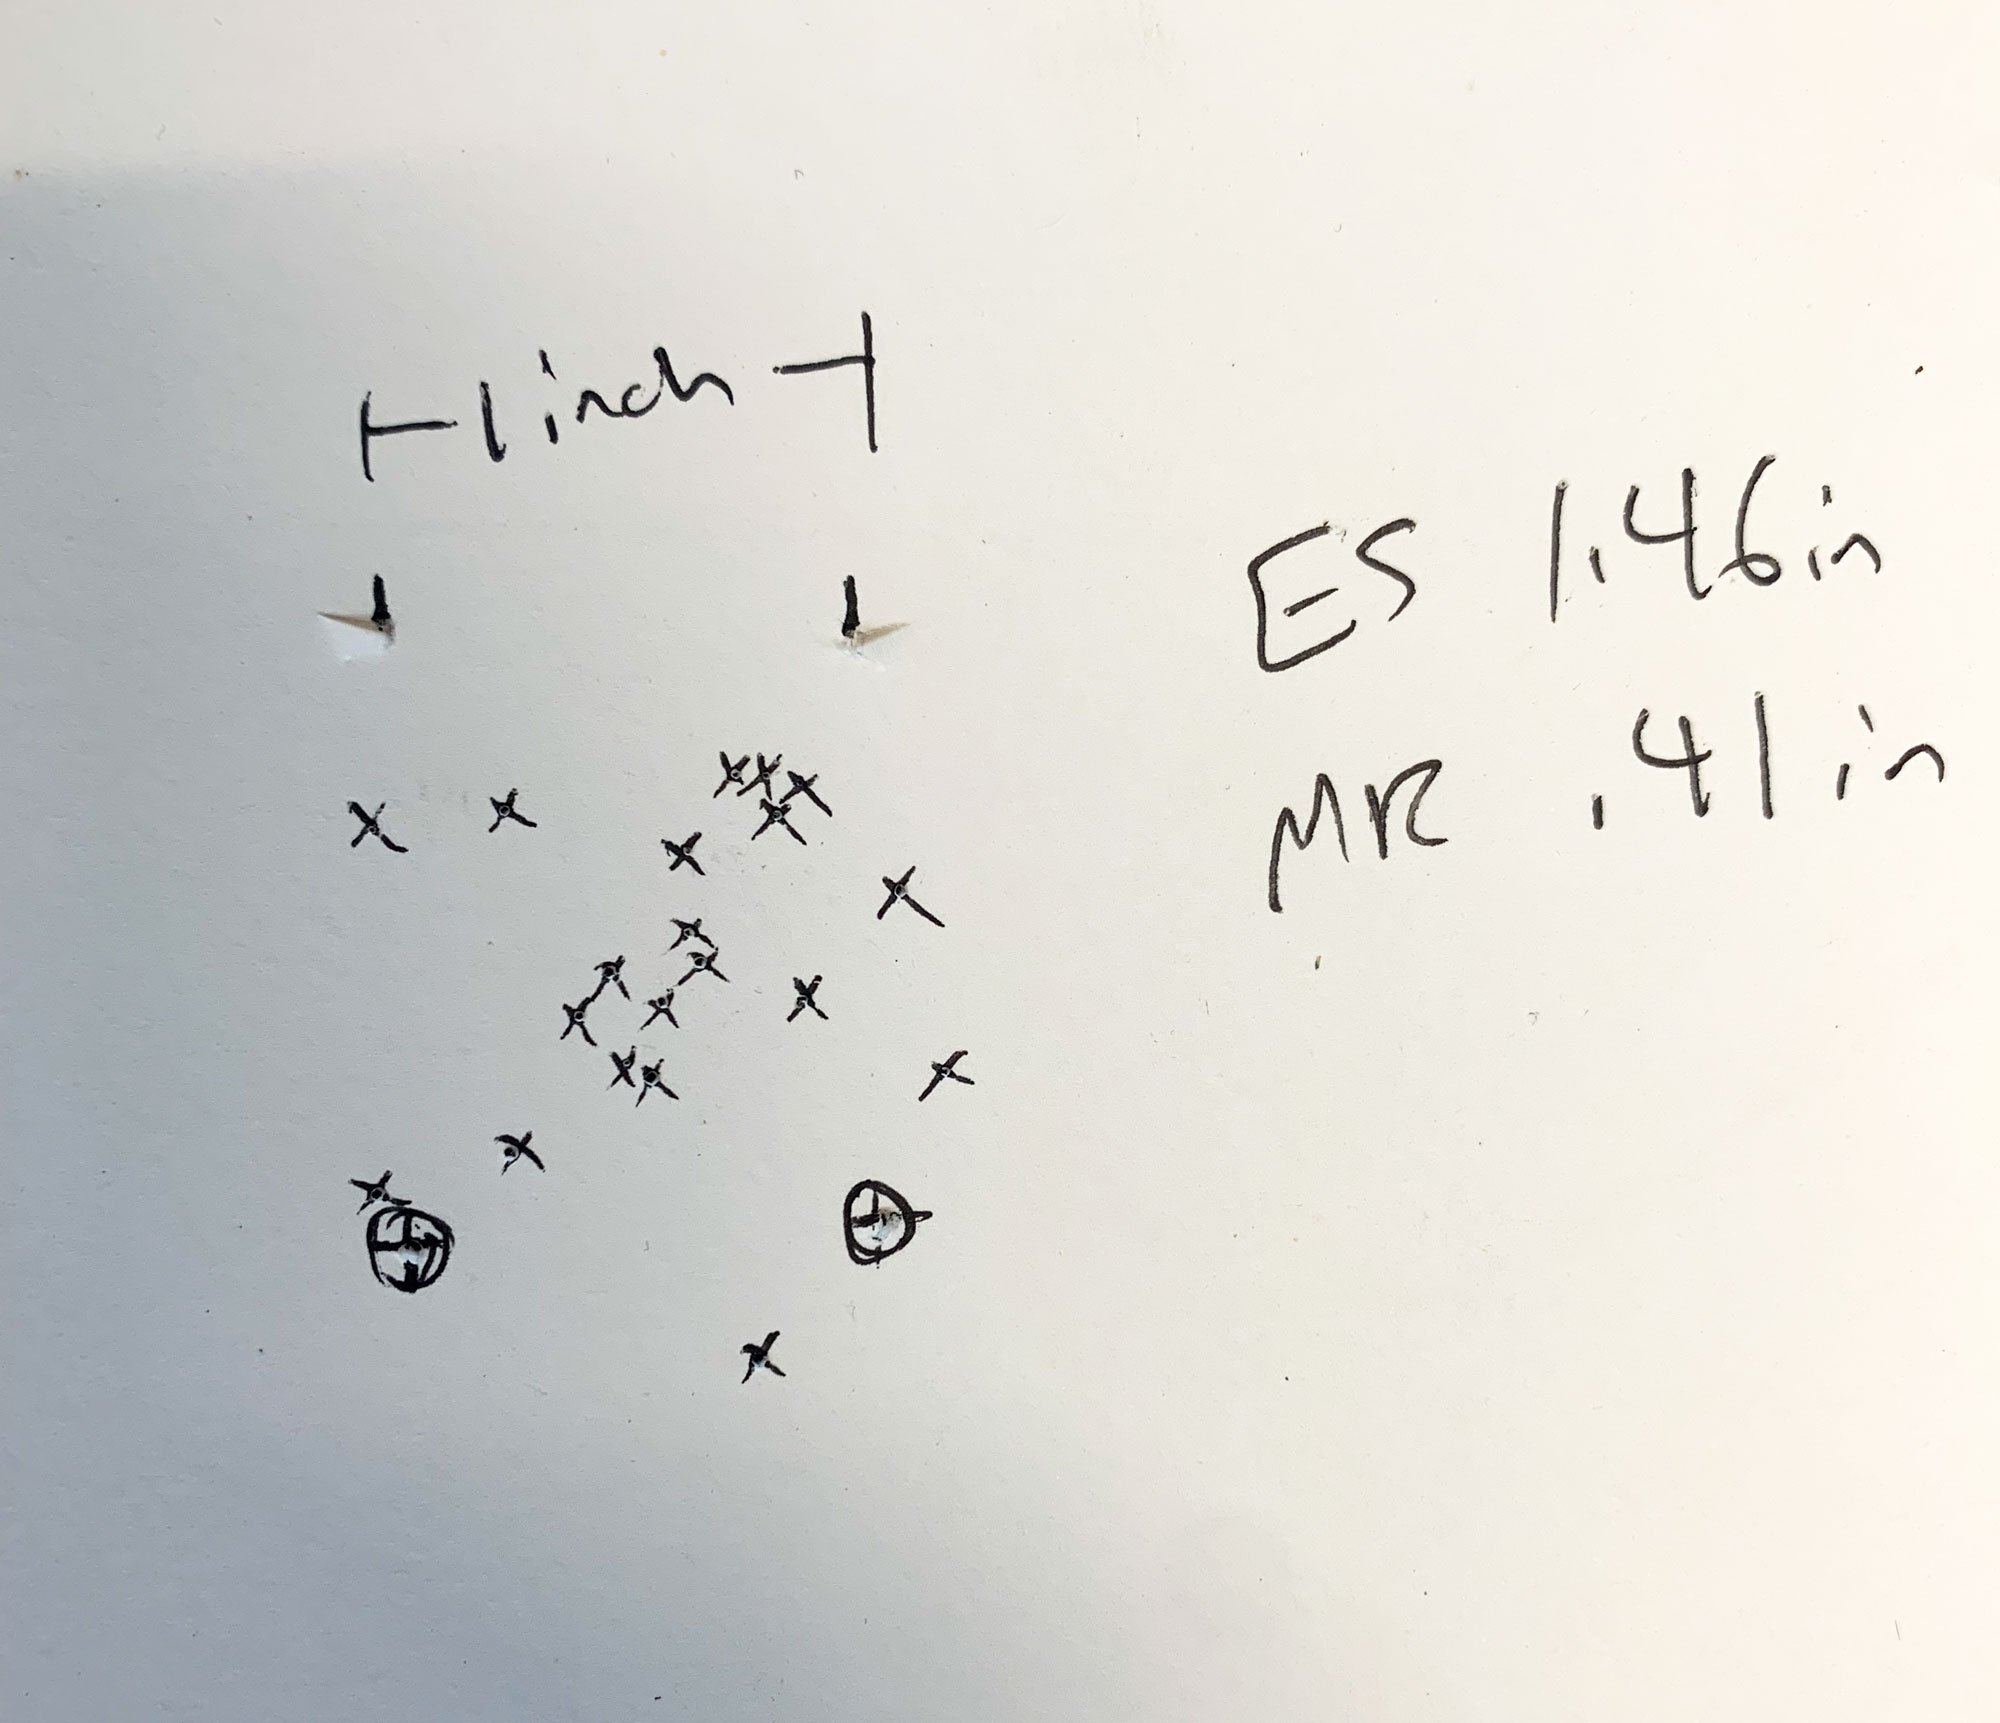 1 inch
ES 1.46 in
MR .41 in